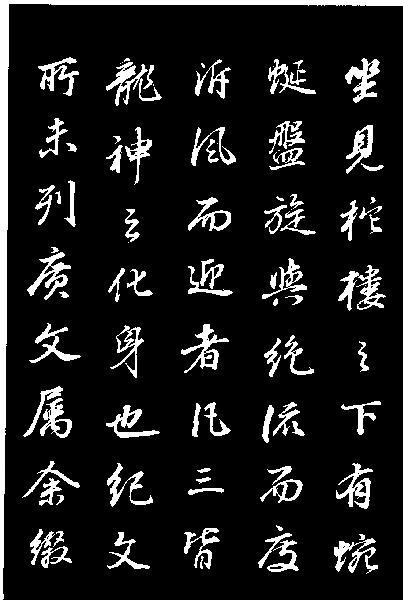 坐見柁樓之下有蜿
蜒盤旋與絶流而度
泝風而迎者凡三皆
龍神之化身也紀文
所未列廣文属余綴